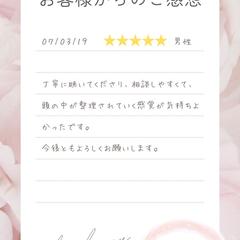 お客様からのご感想
07/03/19 ★★★★★ 男性
丁寧に聴いてくださり、相談しやすくて、
頭の中が整理されていく感覚が気持ちよ
かったです。
今後ともよろしくお願いします。